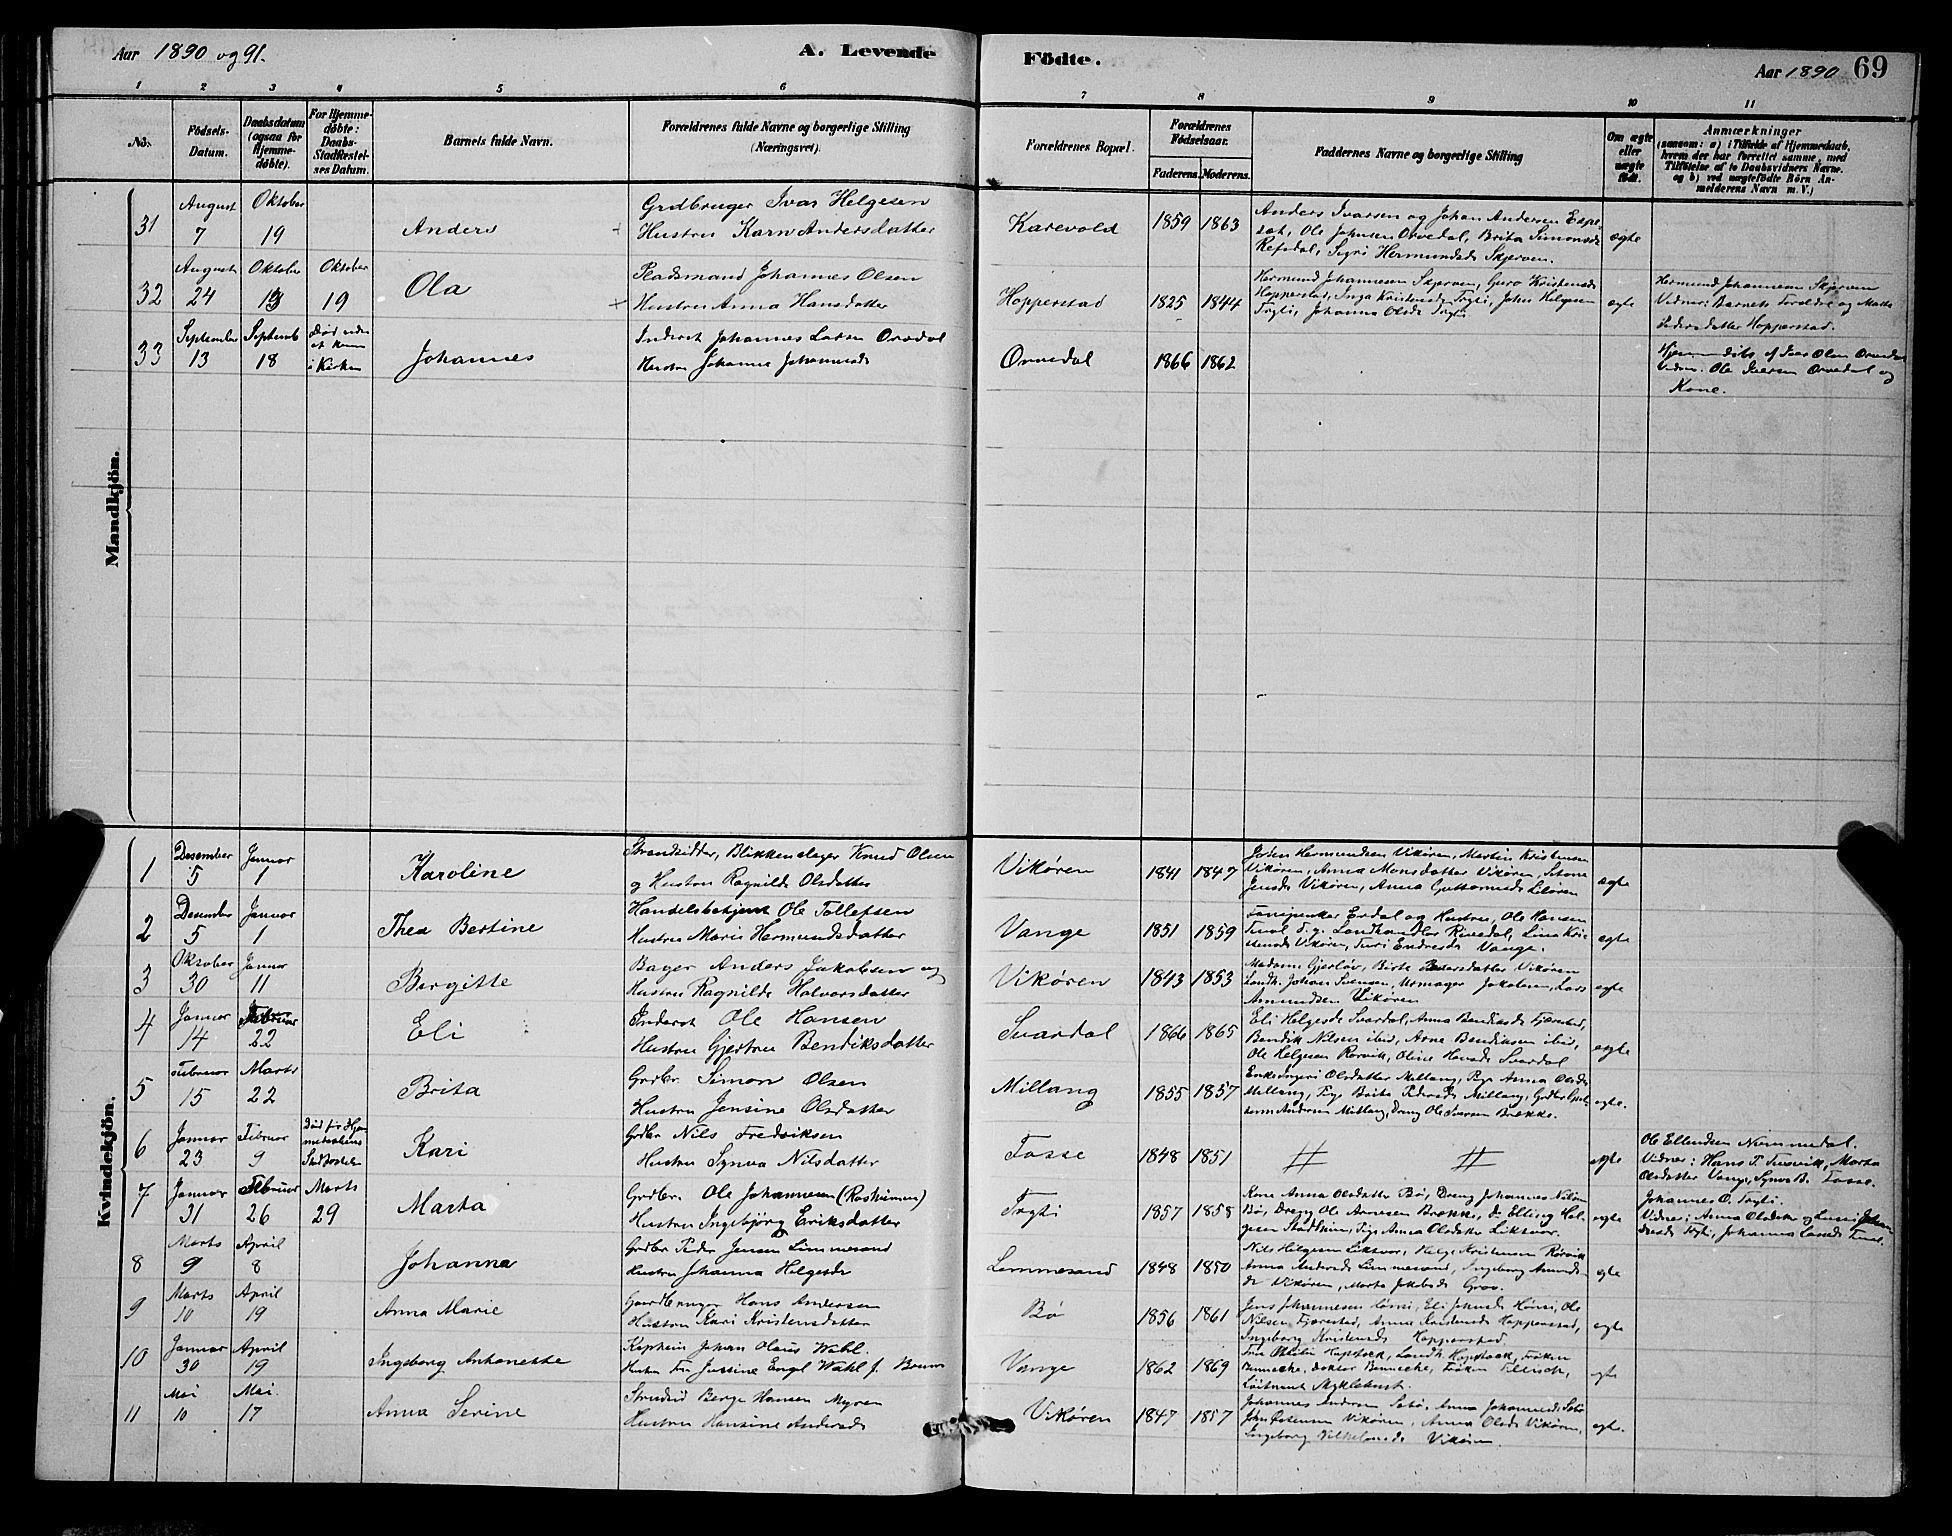 Aar 1890 og 91.
A. Levende Födte.
Aar 1890 69
1 2 3 4 5 6 7 8 9 10 11
No.
Födsels-Datum.
Daabsdatum (ogsaa for Hjemme-döbte).
For Hjemme-döbte: Daabs-Stadfæstel-ses Datum.
Barnets fulde Navn.
Forældrenes fulde Navne og borgerlige Stilling (Næringsvei).
Forældrenes Bopæl.
Forældrenes Födselsaar.
Faderens. Moderens.
Faddernes Navne og borgerlige Stilling
Om ægte eller uægte födt.
Anmærkninger
(saasom: a) i Tilfælde af Hjemmedaab, hvem der har forrettet samme, med Tilföielse af to Daabsvidners Navne. og b) ved uægtefödte Börn An-melderens Navn m. V.)
Mandkjön.
31 August 7 Oktober 19 Anders
Grdbruger Ivar Helgesen
Hustru Karn Andersdatter
Karevold 1859 1863
Anders Ivarsen og Johan Andersen Espe-
Ole Johnsen Orvedal, Brita Simonsd
Refsdal, Sigri Hermundsd Skjerven.
ægte
32 August 24 Oktober 19 Oktober 19 Ola
Pladsmand Johannes Olsen
Hustru Anna Hansdatter
Hopperstad 1825 1844
Hermund Johannesen Skjerven, Guro Kristensd
Hopperstad, Inga Kristensd Tryti, John Helgesen
Tryti, Johanna Olsd Tryti
egte
Hermund Johannesen Skjerven
Vidner: Barnets Forældre og Marta
Hopperstad.
33 September 13 Septemb 18 Død uden
i Kirken
Johannes
Inderst Johannes Larsen Orvedal
Hustru Johanna Johannesd
Orvedal 1866 1862
Hjemmedøbt af Iver Olsen Orvedal
Vidner. Ole Iversen Orvedal og
Kone.
Kvindekjön.
1 Desember 5 Januar 1 Karoline
Strandsidder, Blikkenslager Knud Olsen
og Hustru Ragnilde Olsdatter
Vikören 1841 1847
Joden Hermundsen Vikören, Martin Kristensen
Vikören, Anna Monsdatter Vikören,
Jensd Vikören, Anna Guttormsd
ægte
2 Desember 5 Januar 1 Thea Bertine
Handelsbetjent Ole Tollefsen
Hustru Marie Hermundsdatter
Vange 1851 1859
Erdal og Hustru, Ole Hansen
Landhandler Rinedal, Lina Kri-
stensd Vikören, Turi Endresd Vange.
egte
3 Oktober 30 Januar 11 Bergitte
Bager Anders Jakobsen og
Hustru Ragnilde Halvorsdatter
Vikören 1843 1853
Madame Gjerløv, Birte Vikören
Landh. Johan Svensen, Urmager Jakobsen, Lars
Amundsen Vikören
egte
4 Januar 14 Februar 22 Eli
Inderst Ole Hansen
Hustru Gjertru Bendiksdatter
Svardal 1866 1865
Eli Helgesd Svardal, Anna Bendiksd Fjærestad,
Bendik Nilsen ibid, Arne Bendiksen ibid,
Ole Helgesen Rørvik, Oline Hansd Svardal
egte
5 Februar 15 Marts 22 Brita
Grdbr. Simon Olsen
Hustru Jensine Olsdatter
Millang 1855 1857
Enke Ingeri Olsdatter Millang, Pige Anna Olsd
Millang, Pige Brita Pedersd Millang, Grdbr Gut-
torm Andersen Millang, Dreng Ole Iversen Brekke.
egte.
6 Januar 23 Februar 9 Død før Hjem-
medaabens
Stadfæstelse
Kari
Grdbr Nils Fredriksen
Hustru Synva Nilsdatter
Tosse 1848 1851
egte
Ole Ellendsen Nummedal.
Vidner: Hans T. Tusvik, Marta
Olsdatter Vange, Synva B. Tosse.
7 Januar 31 Februar 26 Marts 29 Marta
Grdbr. Ole Johannesen
Hustru Ingebjörg Eriksdatter
Tryti 1857 1858
Kone Anna Olsdatter Bö, Dreng Johannes Nilsen
Bö, Dreng Ole Arnesen Brekke, do Elling Hel-
gesen Stadheim, Pige Anna Olsdatter Liktvor.
egte
Johannes O. Tryti.
Vidner: Anna Olsdtr og
Tryti, Johanna Larsd
8 Marts 9 April 8 Johanna
Grdbr Peder Jensen Limmesand
Hustru Johanna Helgesd
Limmesand 1848 1850
Nils Helgesen Liktvor, Helge Kristensen Rørvik
Anna Andersd Limmesand, Ingeborg Amunds-
dr Vikören, Marta Jakobsd Grov.
egte
9 Marts 10 April 19 Anna Marie
Gaardbruger Hans Andersen
Hustru Kari Kristensdatter
Bö 1856 1861
Jens Johannesen Hönsi, Eli Johnsd Hönsi, Ole
Nilsen Fjærestad, Anna Kristensd Hopperstad,
Ingeborg Kristensd Hopperstad
egte
10 Januar 30 April 19 Ingeborg Antonette
Kaptein Johan Olaus Wahl.
Hustru Fru Justine Engl Wahl f. Bruun
Vange 1862 1869
Fru Ottilie Hopstock, Landh. Hopstock, Frøken
Bennecke, doktor Bennecke, Frøken
Løitnant Myklebust.
egte
11 Mai 10 Mai. 17 Anna Serine
Strandsid Berge Hansen Myren
Hustru Hansine Andersd
Vikören 1847 1857
Johannes Andersen Sebö, Anna Johannesd Sebö
John Østensen Vikören, Anna Olsd Vikören,
Ingeborg Vilhelmsd Vikören.
egte.